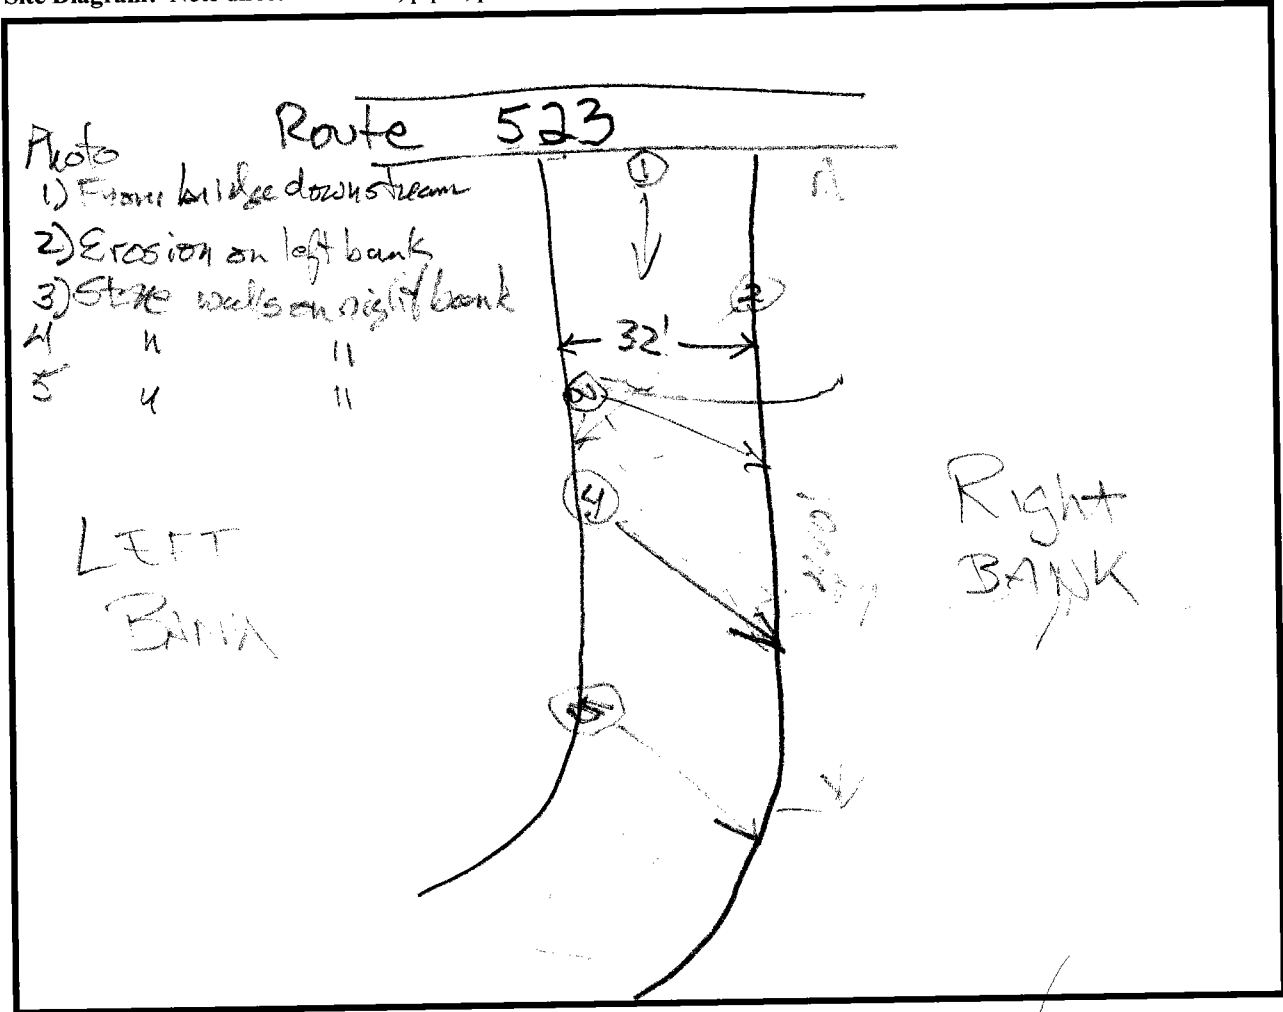 Site Diagram:
Route 523
Photo
1) From bridge downstream
2) Erosion on left bank
3) Stone walls on right bank
4 " "
5 " "
1
2
32'
4
5
LEFT
Right
BANK